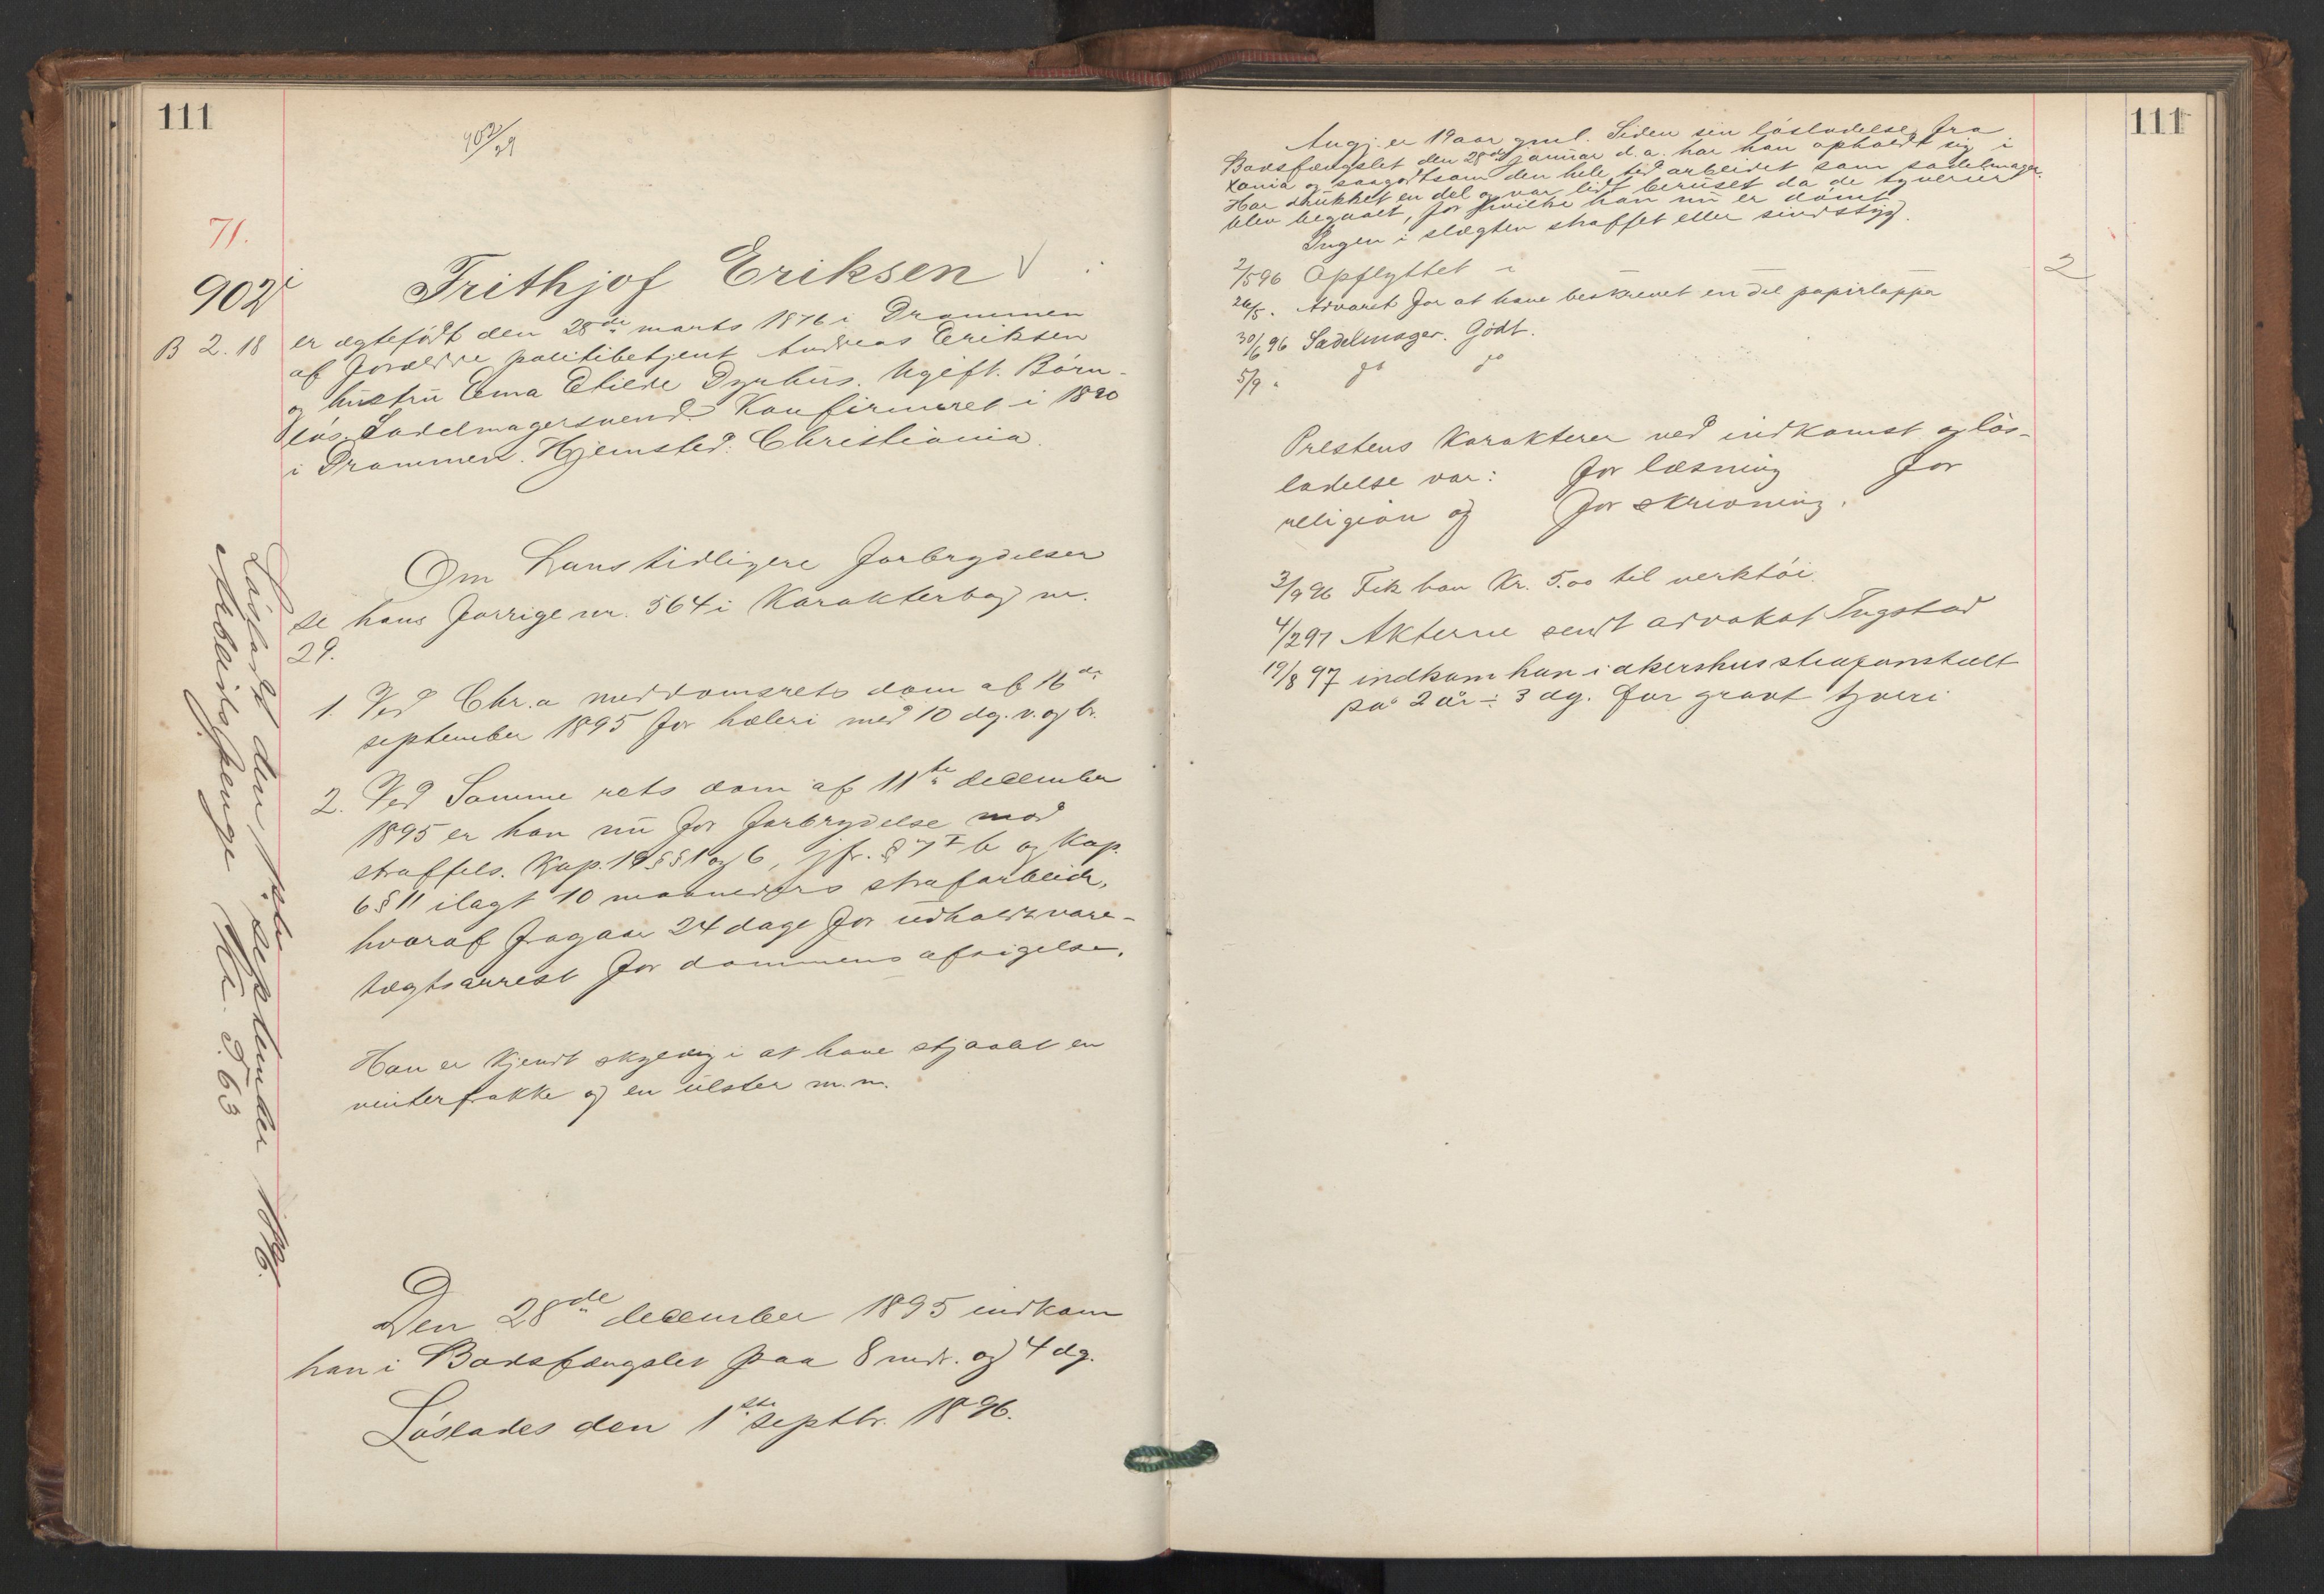 111
902/29
71.
902
B 2.18
Frithjof Eriksen
er ægtefödt den 28de marts 1876 i Drammen
af forældre politibetjent Andreas Eriksen
og hustru Ema Dyrhus. Ugift. Börn-
lös. Sadelmagersvend. Konfirmeret i 1890
i Drammen. Hjemsted: Christiania.
Om hans tidligere forbrydelser
se hans forrige nr. 564 i Karakterbog nr.
29.
1. Ved Chr.a meddomsrets dom af 16de
september 1895 for hæleri med 10 dg. v. og br.
2. Ved Samme rets dom af 11te december
1895 er han nu for forbrydelse mod
straffels. Kap. 19 §§ 1 og 6, jfr. § 7 I b og Kap.
6 § 11 ilagt 10 maaneders strafarbeide,
hvoraf fragaar 24 dage for udholdt vare-
tægtsarrest for dommens afsigelse.
Han er kjendt skyldig i at have stjaalet en
vinterfrakke og en ulster m.m.
Den 28de december 1895 indkom
han i Bodsfængslet paa 8 mdr. og 4 dg.
Löslades den 1ste septbr. 1896.
Lösladt den 1ste september 1896.
Arbeidspenge Kr. 5.63
111
Angj. er 19 aar gml. Siden sin lösladelse fra
Bodsfængslet den 28de januar d.a. har han opholdt sig i
Xania og saagodtsom den hele tid arbeidet som sadelmager.
Har drukket en del og var lidt beruset da de tyverier
blev begaaet, for hvilke han nu er dömt.
Ingen i slægten straffet eller sindssyg.
2/5 96 Opflyttet
2
26/5. Advaret for at have beskrevet en del papirlapper
30/6 96 Sadelmager. Godt.
5/9 " go go
Prestens Karakterer ved indkomst og lös-
ladelse var: for læsning for
religion og for skrivning.
3/9 96 Fik han Kr. 5.00 til verktöi.
4/2 97 Akterne sendt advokat Tugstad
19/8 97 indkom han i akershus strafanstalt
på 2 år ÷ 3 dg. for grovt tyveri